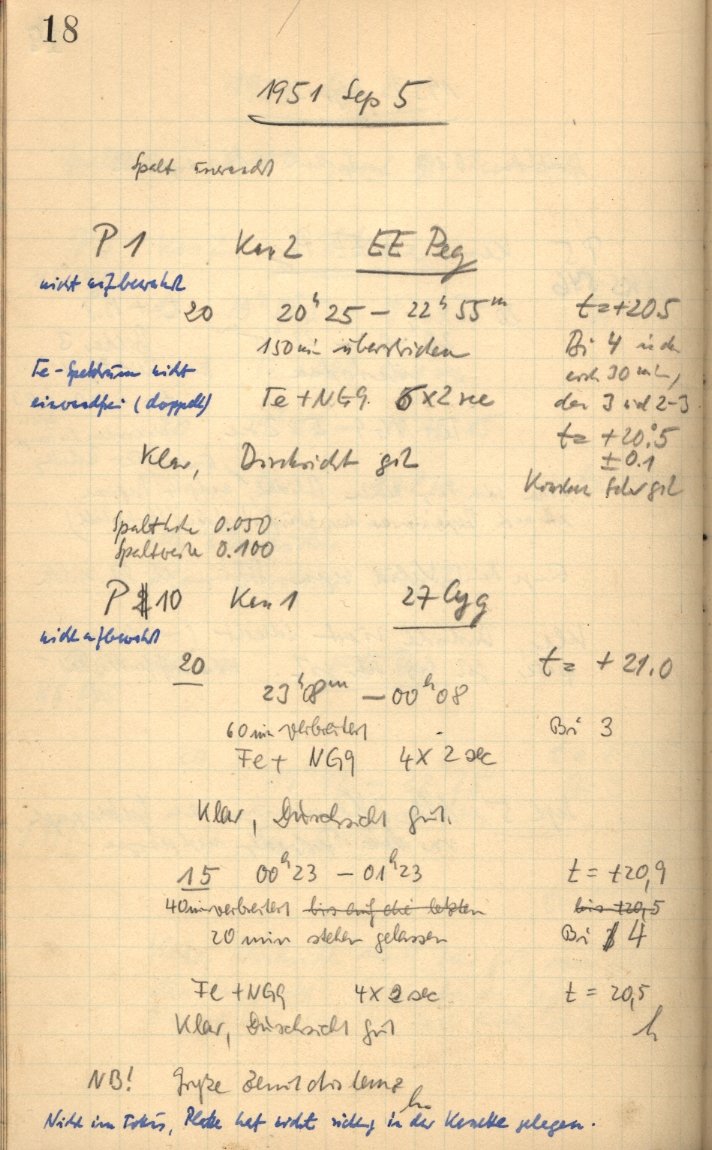 18
1951 Sep 5
Spalt
P 1 Kam 2 EE Peg
nicht aufbewahrt
20 20ʰ25 – 22ʰ55ᵐ t=+20.5
150 min überstrichen Bi 4 in den
Fe-Spektrum nicht ersten 30 min,
einwandfrei (doppelt) Fe+NG9 6×2 sec dann 3 und 2-3
t= +20.°5
Klar, Durchsicht gut ±0.1
Kontakt sehr gut
Spalthöhe 0.050
Spaltweite 0.100
P 10 Kam 1 27 Cyg
nicht aufbewahrt
20 t= +21.0
23ʰ08ᵐ – 00ʰ08
60 min verbreitert Bi 3
Fe+ NG9 4×2 sec
Klar, Durchsicht gut.
15 00ʰ23 – 01ʰ23 t= +20,9
40 min verbreitert bis auf die letzten bis +20,5
20 min stehen gelassen Bi 4
Fe+NG9 4×2 sec t = 20,5
Klar, Durchsicht gut h
NB! Große Zenitdistanz
Nicht im Fokus, Platte hat nicht richtig in der Kassette gelegen.